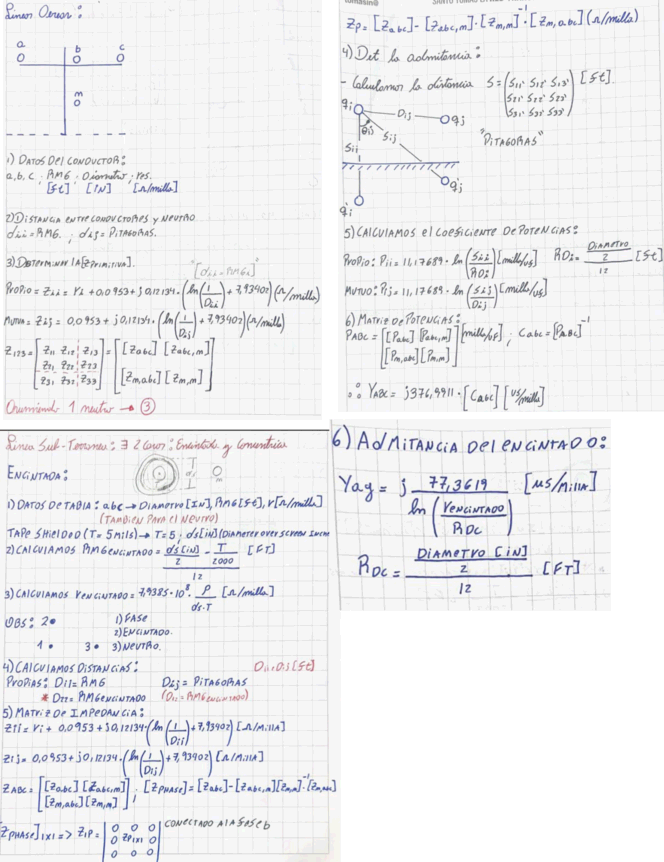 Lineas Aereas:
a b c
m
1) DATOS DEL CONDUCTOR:
a, b, c : RMG ; Diametro ; res.
[ft] [IN] [Ω/milla]
2) DISTANCIA ENTRE CONDUCTORES y NEUTRO
dii = RMG. ; dij = PITAGORAS.
3) DETERMINAR LA [Zprimitiva].
"[dii = RMGi]"
PROPIO = Zii = ri + 0,0953 + j0,12134 · (ln(1/Dii) + 7,93402) (Ω/milla)
MUTUA = Zij = 0,0953 + j0,12134 · (ln(1/Dij) + 7,93402) (Ω/milla)
Z123 = [Z11 Z12 Z13 = [[Zabc] [Zabc,m]
Z21 Z22 Z23
Z31 Z32 Z33] [Zm,abc] [Zm,m]]
Asumiendo 1 neutro → ③
tomasino
Zp = [Zabc] - [Zabc,m] · [Zm,m]⁻¹ · [Zm,abc] (Ω/milla)
4) Det la admitancia:
- Calculamos la distancia S = (S11' S12' S13' [ft]
S21' S22' S23'
S31' S32' S33')
qi Dij qj
θij
Sii Sij
"PITAGORAS"
q'j
q'i
5) CALCULAMOS el COEFICIENTE DE POTENCIAS:
PROPIO: Pii = 11,17689 · ln(Sii/RDi) [milla/us] RDi = DIAMETRO/2/12 [ft]
MUTUO: Pij = 11,17689 · ln(Sij/Dij) [milla/us]
6) MATRIZ DE POTENCIAS:
PABC = [[Pabc] [Pabc,m] [milla/uf] ; Cabc = [PABC]⁻¹
[Pm,abc] [Pm,m]]
∴ YABC = j376,9911 · [Cabc] [us/milla]
Linea Sub-Terranea: ∃ 2 Casos: Encintada y Concentrica
ENCINTADA:
T
ds
m
1) DATOS DE TABLA: abc → Diametro [IN], RMG [ft], r [Ω/milla]
(TAMBIEN PARA EL NEUTRO)
TAPE SHIELDED (T = 5 mils) → T = 5 ; ds [in] (DIAMETER OVER SCREEN
2) CALCULAMOS RMGENCINTADO = ds[in]/2 - T/2000 /12 [FT]
3) CALCULAMOS rENCINTADO = 7,9385 · 10⁸ · ρ/ds·T [Ω/milla]
OBS: 2• 1) FASE
2) ENCINTADO.
1 • 3 • 3) NEUTRO.
4) CALCULAMOS DISTANCIAS: Dii, Dij [ft]
PROPIAS: D11 = RMG Dij = PITAGORAS
* D22 = RMGENCINTADO (Dii = RMGENCINTADO)
5) MATRIZ DE IMPEDANCIA:
Zii = ri + 0,0953 + j0,12134 · (ln(1/Dii) + 7,93402) [Ω/MILLA]
Zij = 0,0953 + j0,12134 · (ln(1/Dij) + 7,93402) [Ω/MILLA]
ZABC = [[Zabc] [Zabc,m] ; [ZPHASE] = [Zabc] - [Zabc,m] [Zm,m]⁻¹ · [Zm,abc]
[Zm,abc] [Zm,m]]
[ZPHASE]1x1 => Z1P = |0 0 0 CONECTADO A LA FASE b
0 ZP1x1 0
0 0 0|
6) ADMITANCIA Del ENCINTADO:
Yag = j 77,3619 / ln(rENCINTADO/RDC) [μS/MILLA]
RDC = DIAMETRO [iN]/2/12 [FT]